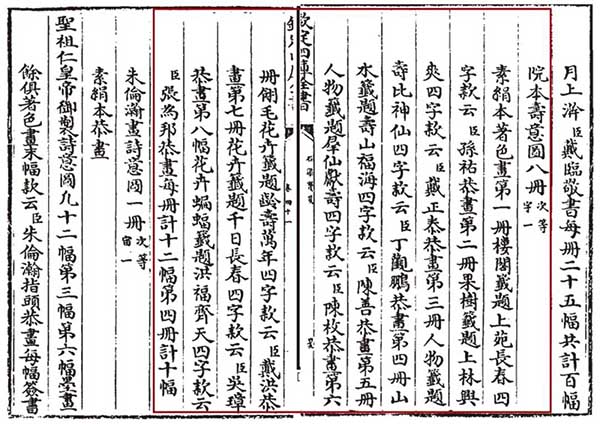 月上澣臣戴臨敬書每冊二十五幅共計百幅
院本壽意圖八冊 次等 宇一
素絹本著色畫第一冊樓閣籤題上苑長春四
字款云臣孫祜恭畫第二冊果樹籤題上林
爽四字款云臣戴正泰恭畫第三冊人物籤題
壽比神仙四字款云臣丁觀鵬恭畫第四冊山
水籤題壽山福海四字款云臣陳善恭畫第五冊
人物籤題羣仙獻壽四字款云臣陳枚恭畫第六
欽定四庫全書
卷四十一
冊翎毛花卉籤題齡壽萬年四字款云臣戴洪恭
畫第七冊花卉籤題千日長春四字款云臣吳璋
恭畫第八幅花卉蝙蝠籤題洪福齊天四字款云
臣張為邦恭畫每冊計十二幅第四冊計十幅
朱倫瀚畫詩意圖一冊 次等 宙一
素絹本恭畫
聖祖仁皇帝御製詩意圖凡十二幅第三幅第六幅墨畫
餘俱著色畫末幅款云臣朱倫瀚指頭恭畫每幅簽書